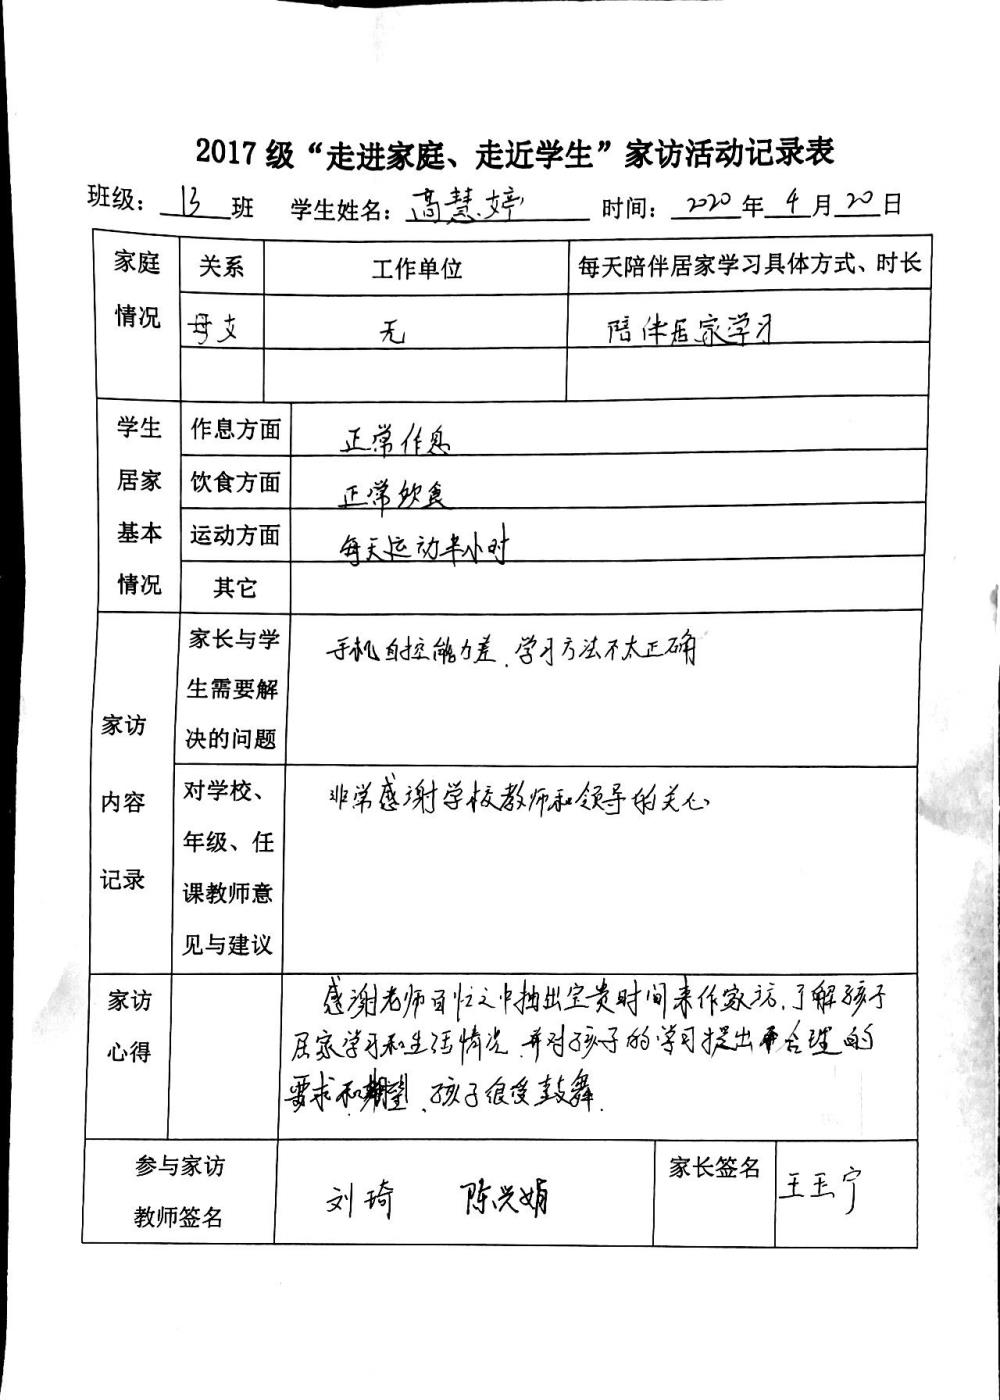 2017级“走进家庭、走近学生”家访活动记录表
班级：13班 学生姓名：高慧婷 时间：2020年4月20日
家庭情况 关系 工作单位 每天陪伴居家学习具体方式、时长
母支 无 陪伴居家学习
学生居家基本情况 作息方面 正常作息
饮食方面 正常饮食
运动方面 每天运动半小时
其它
家访内容记录
家长与学
生需要解
决的问题
手机自控能力差、学习方法不太正确
对学校、
年级、任
课教师意
见与建议
非常感谢学校教师和领导的关心
家访
心得
感谢老师百忙之中抽出宝贵时间来作家访，了解孩子
居家学习和生活情况，并对孩子的学习提出合理的
要求和期望、孩子很受鼓舞.
参与家访
教师签名
刘琦 陈兴娟
家长签名
王玉宁